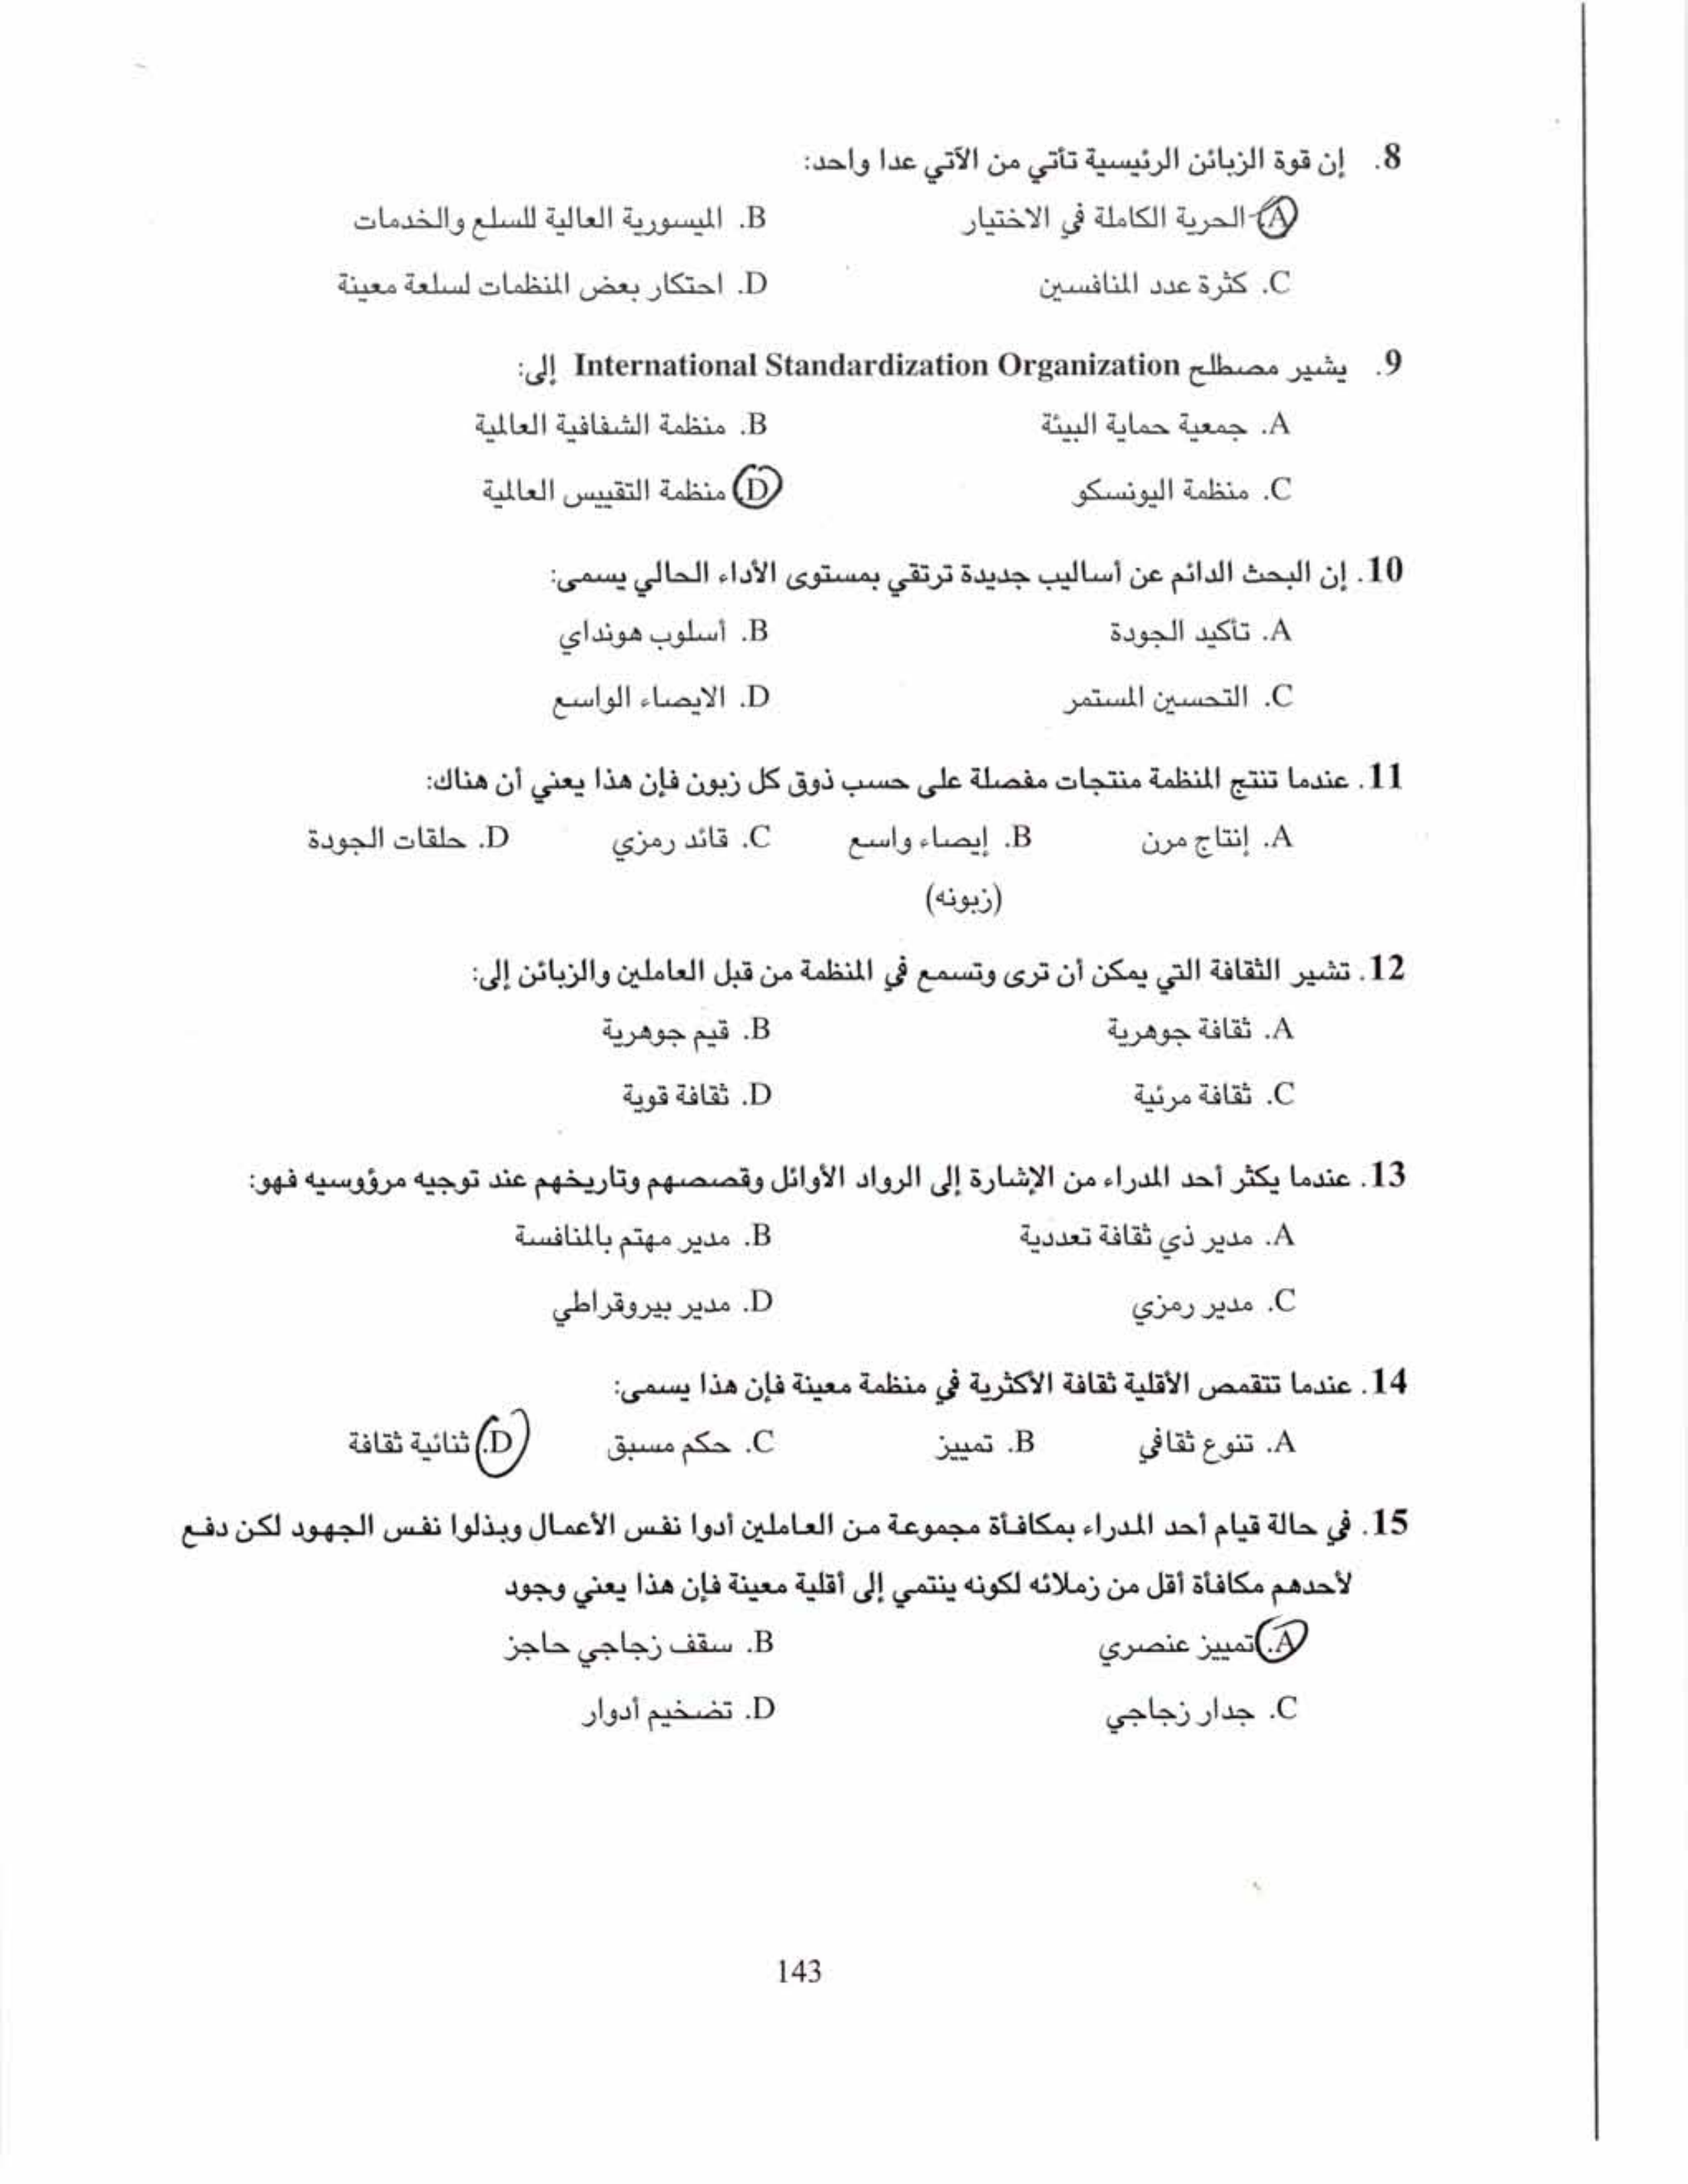 8. إن قوة الزبائن الرئيسية تأتي من الآتي عدا واحد:
A. الحرية الكاملة في الاختيار B. الميسورية العالية للسلع والخدمات
C. كثرة عدد المنافسين D. احتكار بعض المنظمات لسلعة معينة
9. يشير مصطلح International Standardization Organization إلى:
A. جمعية حماية البيئة B. منظمة الشفافية العالمية
C. منظمة اليونسكو D. منظمة التقييس العالمية
10. إن البحث الدائم عن أساليب جديدة ترتقي بمستوى الأداء الحالي يسمى:
A. تأكيد الجودة B. أسلوب هونداي
C. التحسين المستمر D. الايصاء الواسع
11. عندما تنتج المنظمة منتجات مفصلة على حسب ذوق كل زبون فإن هذا يعني أن هناك:
A. إنتاج مرن B. إيصاء واسع C. قائد رمزي D. حلقات الجودة
(زبونه)
12. تشير الثقافة التي يمكن أن ترى وتسمع في المنظمة من قبل العاملين والزبائن إلى:
A. ثقافة جوهرية B. قيم جوهرية
C. ثقافة مرئية D. ثقافة قوية
13. عندما يكثر أحد المدراء من الإشارة إلى الرواد الأوائل وقصصهم وتاريخهم عند توجيه مرؤوسيه فهو:
A. مدير ذي ثقافة تعددية B. مدير مهتم بالمنافسة
C. مدير رمزي D. مدير بيروقراطي
14. عندما تتقمص الأقلية ثقافة الأكثرية في منظمة معينة فإن هذا يسمى:
A. تنوع ثقافي B. تمييز C. حكم مسبق D. ثنائية ثقافة
15. في حالة قيام أحد المدراء بمكافأة مجموعة من العاملين أدوا نفس الأعمال وبذلوا نفس الجهود لكن دفع
لأحدهم مكافأة أقل من زملائه لكونه ينتمي إلى أقلية معينة فإن هذا يعني وجود
A. تمييز عنصري B. سقف زجاجي حاجز
C. جدار زجاجي D. تضخيم أدوار
143